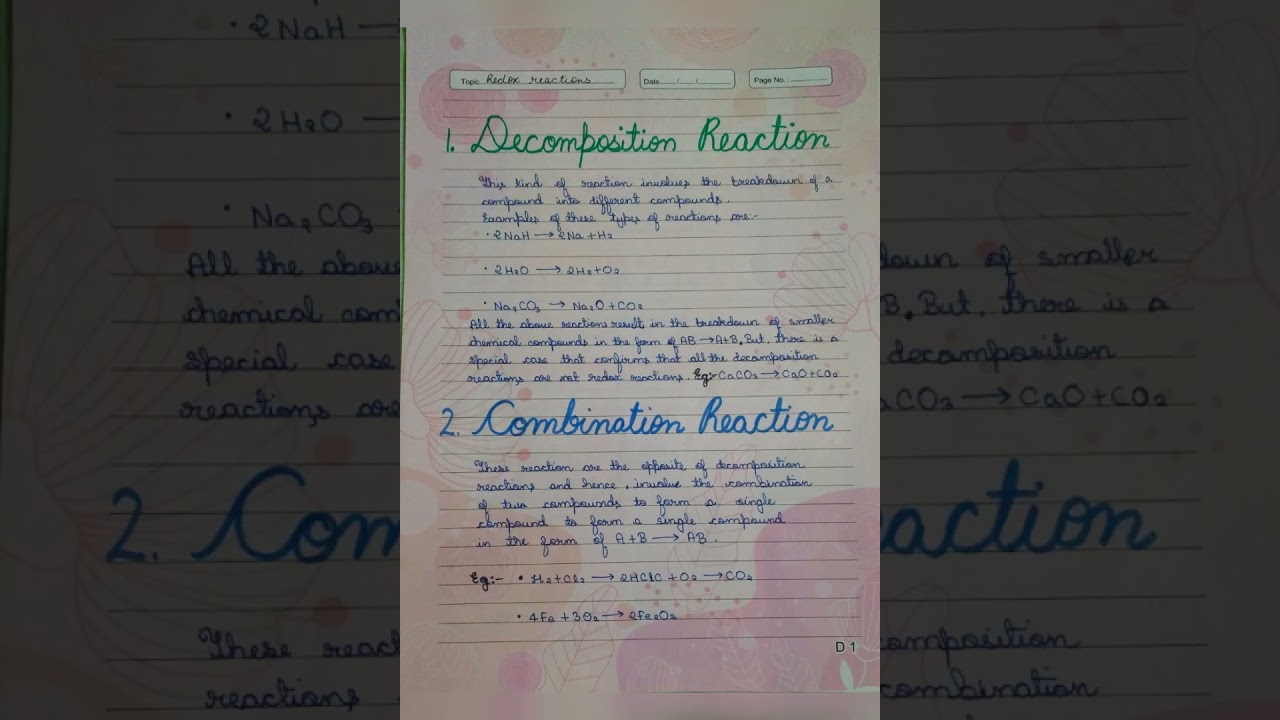 Topic Redox reactions
Date / /
Page No. :
1. Decomposition Reaction
This kind of reaction involves the breakdown of a
compound into different compounds.
Examples of these types of reactions are:-
• 2NaH → 2Na + H2
• 2H2O → 2H2 + O2
• Na2CO3 → Na2O + CO2
All the above reactions result in the breakdown of smaller
chemical compounds in the form of AB → A+B. But, there is a
special case that confirms that all the decomposition
reactions are not redox reactions. Eg:- CaCO3 → CaO + CO2
2. Combination Reaction
These reaction are the opposite of decomposition
reactions and hence, involve the combination
of two compounds to form a single
compound to form a single compound
in the form of A + B → AB.
Eg:- • H2 + Cl2 → 2HClC + O2 → CO2
• 4Fe + 3O2 → 2Fe2O3
D 1